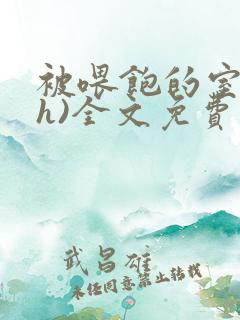 被喂飽的室
h)全文免費
武昌雄
未经同意禁止转载